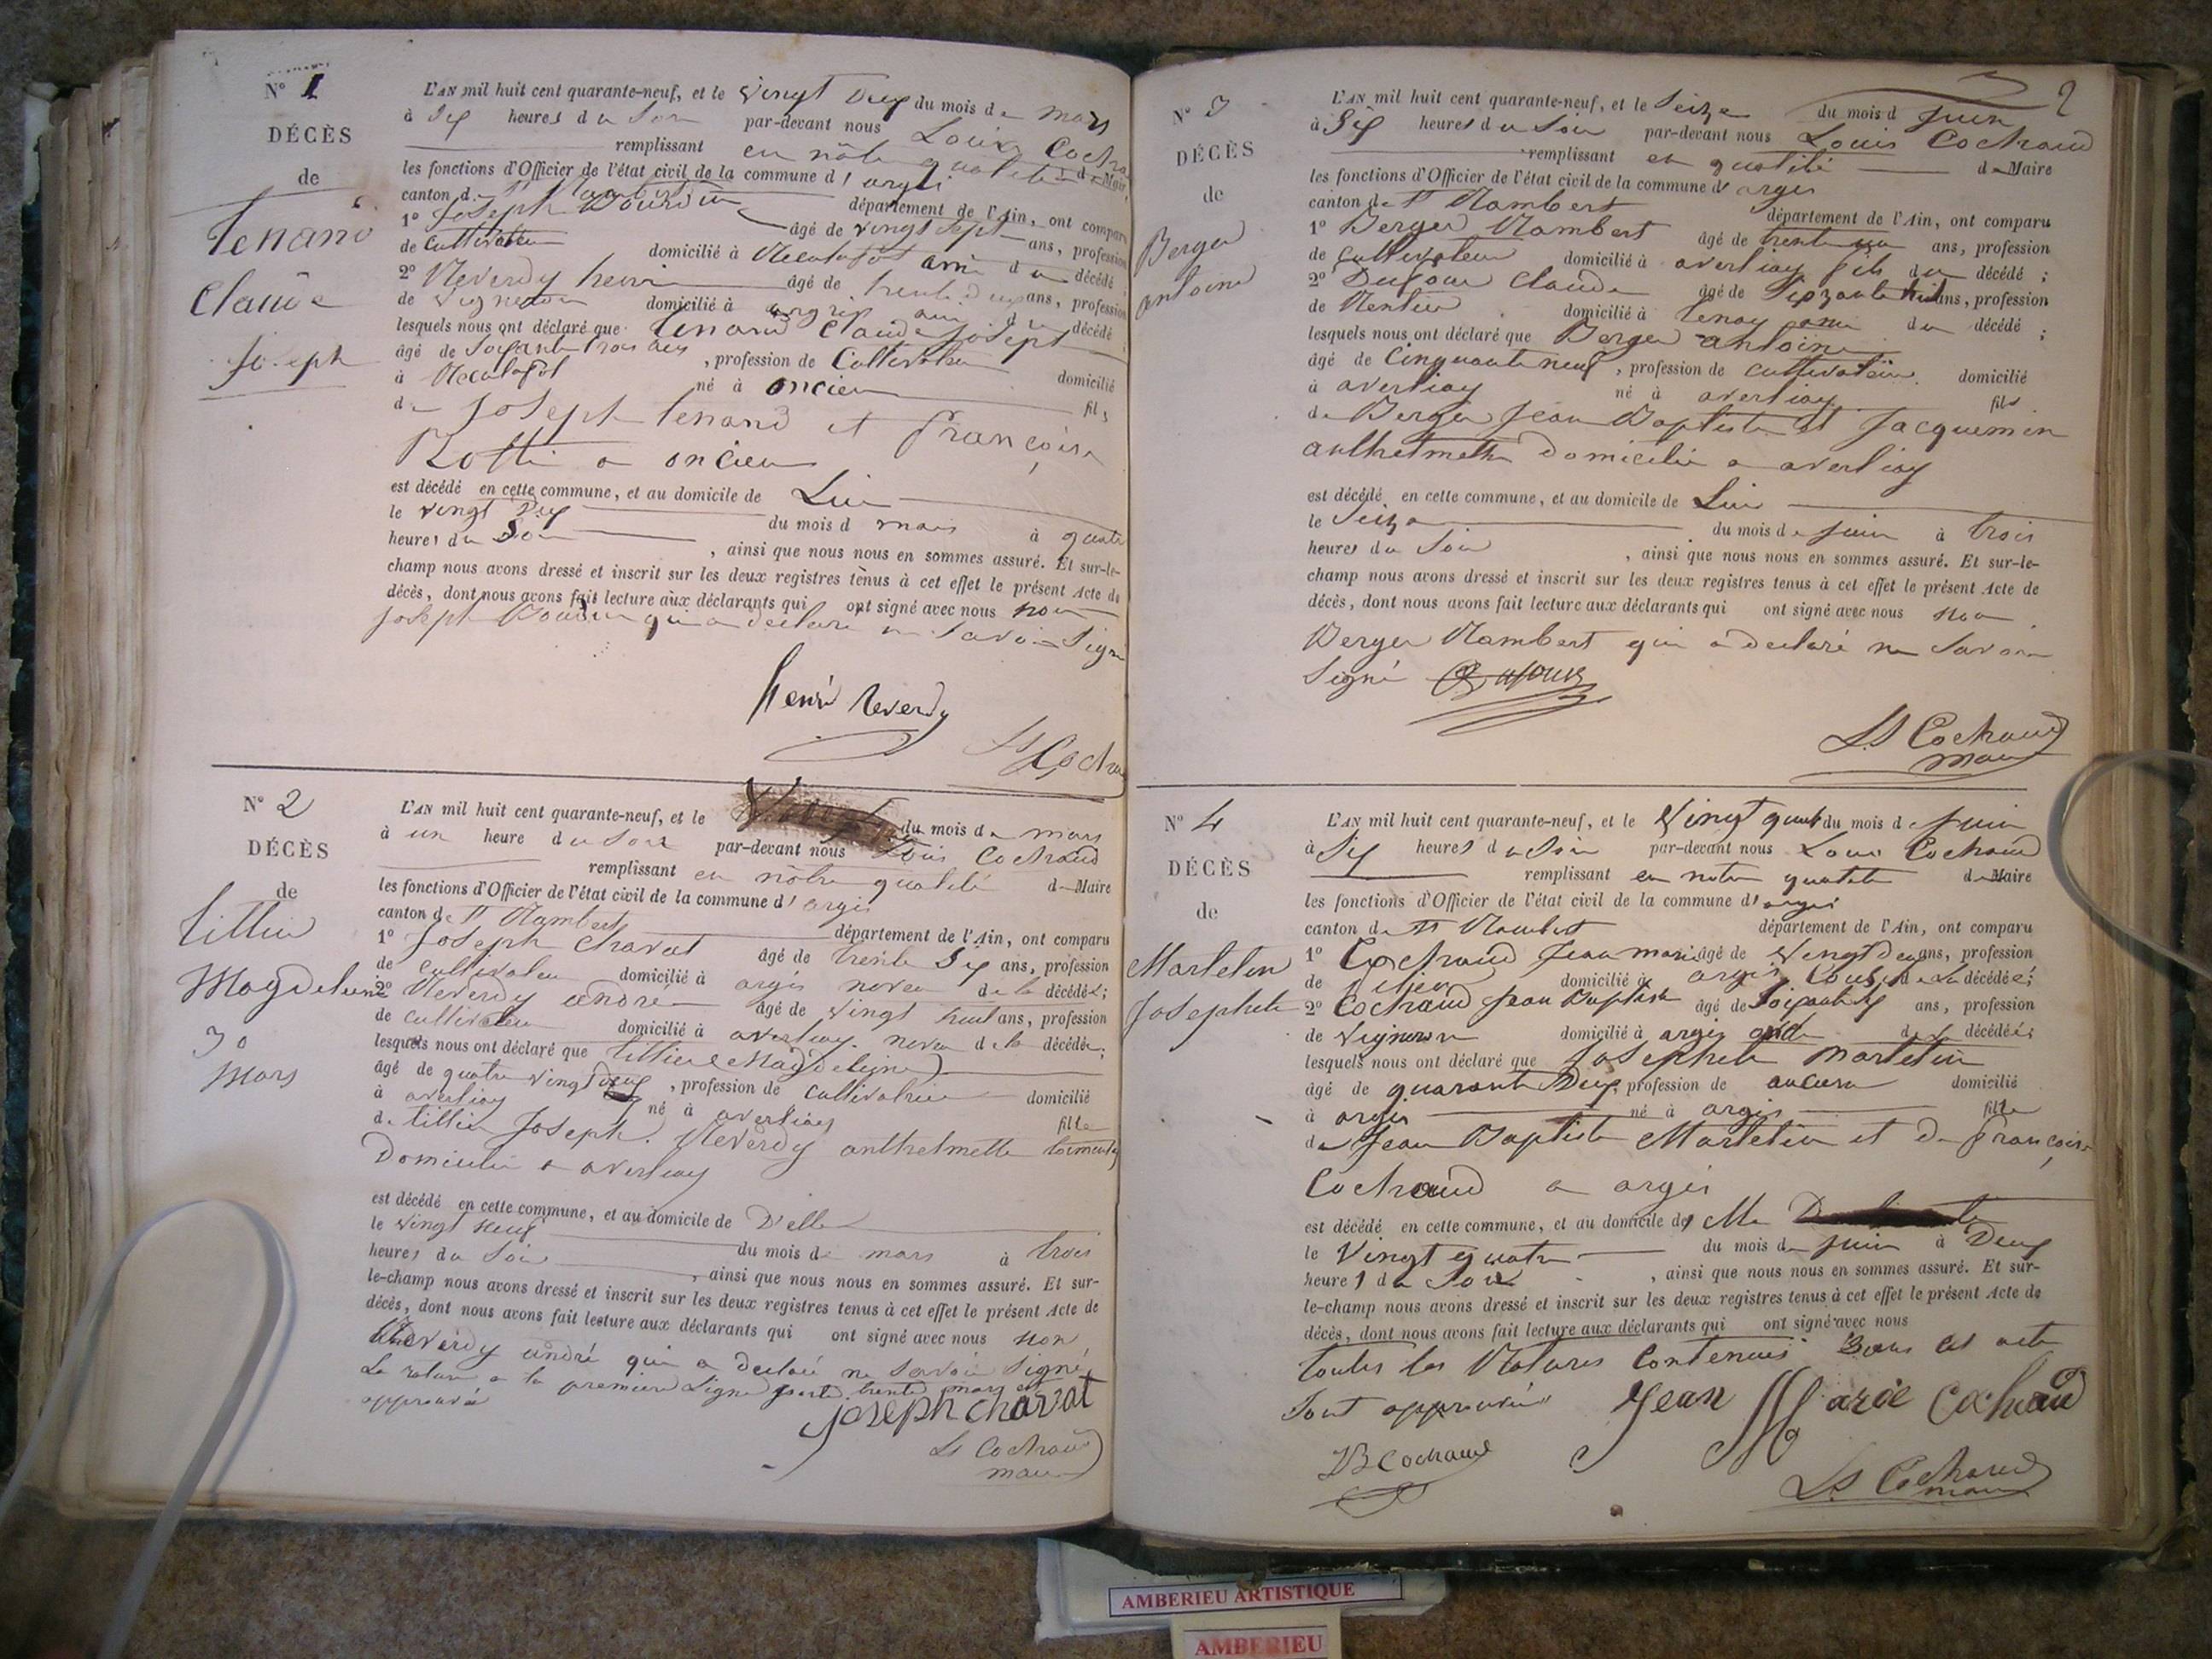 N° 1
DÉCÈS
de
Tenand
Claude
Joseph
L'AN mil huit cent quarante-neuf, et le vingt Dix du mois de mars
à Six heures du Soir par-devant nous Louis Cochaud
remplissant en nôtre qualité de Maire
les fonctions d'Officier de l'état civil de la commune d'argis
canton de St Rambert département de l'Ain, ont comparu
1° Joseph Bourdin âgé de vingt Sept ans, profession
de cultivateur domicilié à Recculafol ami du décédé
2° Reverdy henri âgé de trente deux ans, profession
de Vigneron domicilié à argis ami du décédé
lesquels nous ont déclaré que Tenand Claude Joseph
âgé de Soixante trois ans, profession de Cultivateur domicilié
à Recculafol né à oncieu fils
de Joseph tenand et françoise
Rotti a oncieu
est décédé en cette commune, et au domicile de Lui
le vingt Dix du mois d mars à quatre
heures du Soir, ainsi que nous nous en sommes assuré. Et sur-le-
champ nous avons dressé et inscrit sur les deux registres tenus à cet effet le présent Acte de
décès, dont nous avons fait lecture aux déclarants qui ont signé avec nous non
Joseph Bourdin qui a declaré ne Savoir Signé
Henri Reverdy
Ls Cochaud
N° 2
DÉCÈS
de
tillier
Magdeleine
30
Mars
L'AN mil huit cent quarante-neuf, et le du mois de mars
à un heure du Soir par-devant nous Louis Cochaud
remplissant en nôtre qualité de Maire
les fonctions d'Officier de l'état civil de la commune d'argis
canton de St Rambert département de l'Ain, ont comparu
1° Joseph Charvat âgé de trente Six ans, profession
de cultivateur domicilié à argis neveu de la décédée;
2° Reverdy andré âgé de vingt huit ans, profession
de cultivateur domicilié à averliay neveu de la décédée;
lesquels nous ont déclaré que tillier (Magdeleine)
âgé de quatre vingt deux, profession de cultivatrice domicilié
à averliay né à averliay fille
de tillier Joseph. Reverdy anthelmette
Domicilié a averliay
est décédé en cette commune, et au domicile de D'elle
le vingt neuf du mois de mars à trois
heures du Soir, ainsi que nous nous en sommes assuré. Et sur-
le-champ nous avons dressé et inscrit sur les deux registres tenus à cet effet le présent Acte de
décès, dont nous avons fait lecture aux déclarants qui ont signé avec nous non
Reverdy andré qui a declaré ne Savoir Signé
La rature a la premiere Ligne porte trente mars est
approuvée
joseph charvat
Ls Cochaud
maire
2
N° 3
DÉCÈS
de
Berger
antoine
L'AN mil huit cent quarante-neuf, et le Seize du mois d Juin
à Six heures du Soir par-devant nous Louis Cochaud
remplissant en qualité de Maire
les fonctions d'Officier de l'état civil de la commune d'argis
canton de St Rambert département de l'Ain, ont comparu
1° Berger Rambert âgé de trente ans, profession
de Cultivateur domicilié à averliay fils du décédé;
2° Dufour Claude âgé de Soixante huit ans, profession
de Rentier domicilié à tenay ami du décédé;
lesquels nous ont déclaré que Berger antoine
âgé de cinquante neuf, profession de cultivateur domicilié
à averliay né à averliay fils
de Berger Jean Baptiste et Jacquemin
anthelmette Domicilié a averliay
est décédé en cette commune, et au domicile de Lui
le Seize du mois de juin à trois
heures du Soir, ainsi que nous nous en sommes assuré. Et sur-le-
champ nous avons dressé et inscrit sur les deux registres tenus à cet effet le présent Acte de
décès, dont nous avons fait lecture aux déclarants qui ont signé avec nous non
Berger Rambert qui a declaré ne Savoir
Signé Dufour
Ls Cochaud
maire
N° 4
DÉCÈS
de
Martelin
Josephete
L'AN mil huit cent quarante-neuf, et le Vingt quatre du mois d Juin
à Six heures du Soir par-devant nous Louis Cochaud
remplissant en notre qualité de Maire
les fonctions d'Officier de l'état civil de la commune d'argis
canton de St Rambert département de l'Ain, ont comparu
1° Cochaud Jean marie âgé de vingt deux ans, profession
de domicilié à argis Cousin de La décédée;
2° Cochaud Jean Baptiste âgé de ans, profession
de Vigneron domicilié à argis décédée;
lesquels nous ont déclaré que Josephete Martelin
âgé de quarante Deux, profession de aucune domicilié
à argis né à argis fille
de Jean Baptiste Martelin et de françoise
Cochaud a argis
est décédé en cette commune, et au domicile de
le Vingt quatre du mois de juin à Deux
heures du Soir, ainsi que nous nous en sommes assuré. Et sur-
le-champ nous avons dressé et inscrit sur les deux registres tenus à cet effet le présent Acte de
décès, dont nous avons fait lecture aux déclarants qui ont signé avec nous
toutes les Ratures contenues Dans cet acte
Sont approuvées Jean Marie Cochaud
JB Cochaud
Ls Cochaud
maire
AMBERIEU ARTISTIQUE
AMBERIEU